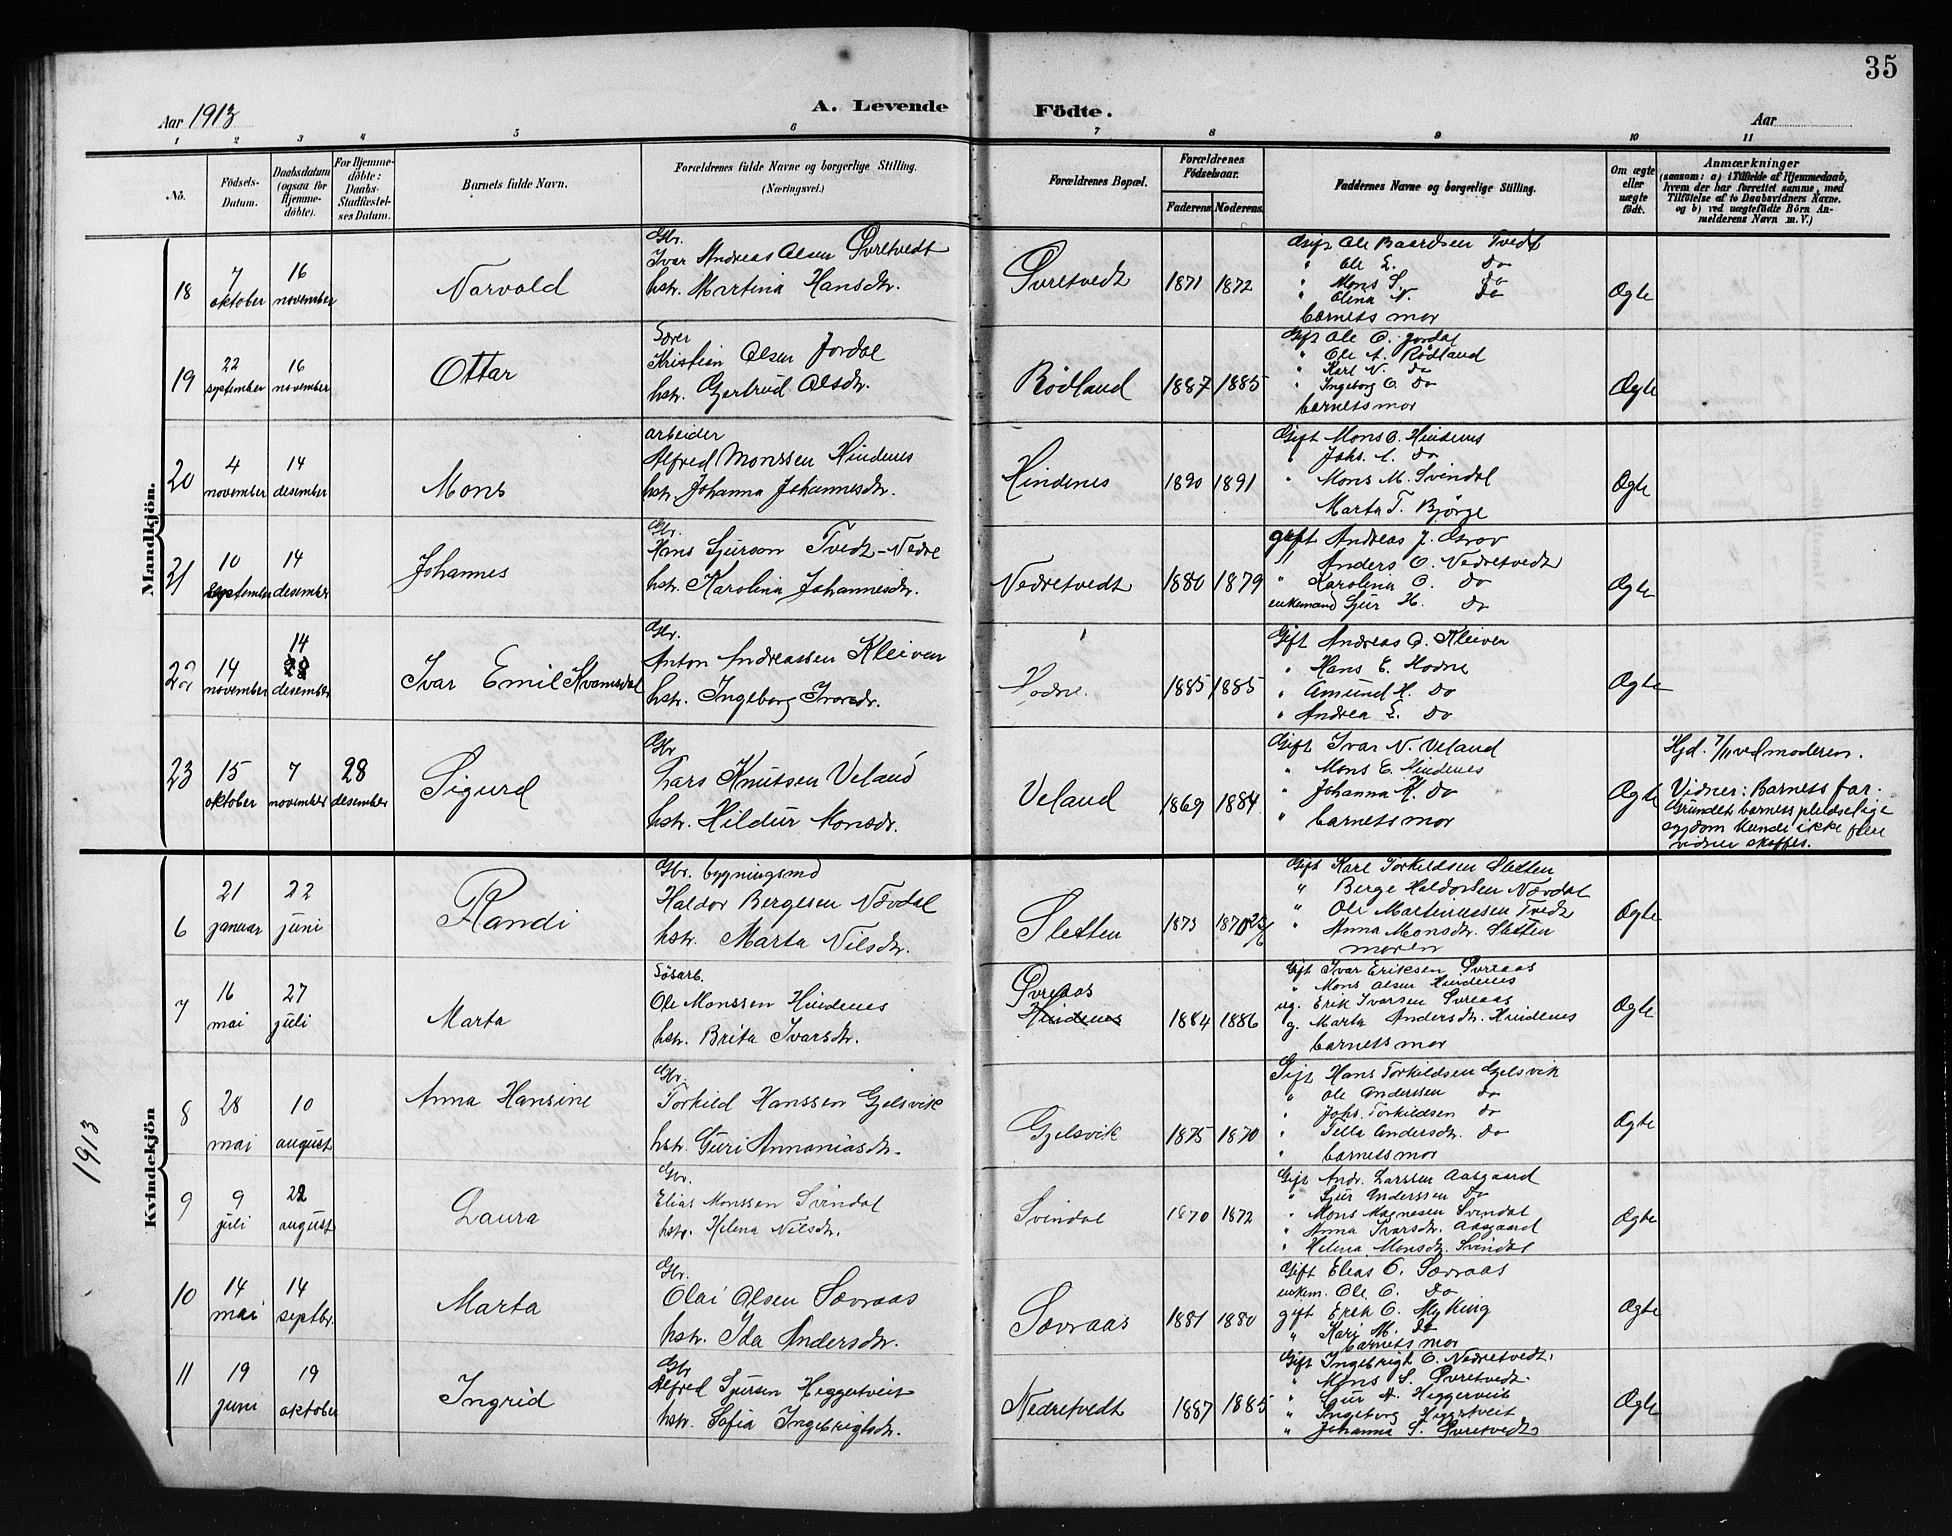 35
Aar 1913
A. Levende Födte.
Aar
1 2 3 4 5 6 7 8 9 10 11
No.
Födsels-Datum.
Daabsdatum (ogsaa for Hjemme-döbte).
For Hjemme-döbte: Daabs-Stadfæstel-ses Datum.
Barnets fulde Navn.
Forældrenes fulde Navne og borgerlige Stilling.
(Næringsvei.)
Forældrenes Bopæl.
Forældrenes Födselsaar.
Faderens Moderens
Faddernes Navne og borgerlige Stilling.
Om ægte eller uægte födt.
Anmærkninger
(saasom: a) i Tilfælde af Hjemmedaab,
hvem der har forrettet samme, med
Tilföielse af to Daabsvidners Navne.
og b) ved uægtefödte Börn An-
melderens Navn m. V.)
Mandkjön.
18
7 oktober
16 november
Norvald
Gbr.
Ivar Andreas Olsen Øvretvedt
hstr. Martina Hansdtr.
Øvretvedt
1871 1872
Gift Ole Baardsen Tvedt
" Ole E. do
" Mons S. do
" Olena N. do
barnets mor
Ægte
19
22 september
16 november
Ottar
Kristian Olsen Jordal
hstr. Gjertrud Olsdtr.
Rödland
1887 1885
Gift Ole O. Jordal
" Ole A. Rödland
" Karl N. do
" Ingeborg O. do
barnets mor
Ægte
20
4 november
14 desember
Mons
arbeider
Alfred Monssen Hindenes
hstr. Johanna Johannesdtr.
Hindenes
1890 1891
Gift Mons O. Hindenes
" Johs. A. do
" Mons M. Svindal
Marta T. Bjørge
Ægte
21
10 september
14 desember
Johannes
Gbr.
Hans Sjurson Tvedt-Nedre
hstr. Karolina Johannesdtr.
Nedretvedt
1880 1879
gift Andreas J. Grov
" Anders O. Nedretvedt
" Karolina O. do
enkemand Sjur H. do
Ægte
22
14 november
14 28 desember
Ivar Emil Kvamsdal
Gbr.
Anton Andreassen Kleiven
hstr. Ingeborg Ivarsdr.
Hodne.
1885 1885
Gift Andreas O. Kleiven
" Hans E. Hodne
" Amund H. do
" Andrea E. do
Ægte
23
15 oktober
7 november
28 desember
Sigurd
Gbr
Lars Knutsen Veland
hstr. Hildur Monsdr.
Veland
1869 1884
Gift Ivar N. Veland
" Mons E. Hindenes
" Johanna K. do
" barnets mor
Ægte
Hjd. 7/11 ved moderen.
Vidner: Barnets far.
Grundet barnets pludselige
sygdom kunde ikke flere
vidner skaffes.
1913
Kvindekjön
6
21 januar
22 juni
Randi
Gbr. bygningsmd
Haldor Bergesen Nævdal
hstr. Marta Nilsdtr.
Sletten
1873 1870 25/6
Gift Karl Torkildsen Sletten
" Berge Haldorsen Nævdal
" Ole Martinussen Tvedt
" Anna Monsdtr. Sletten
moren
Ægte
7
16 mai
27 juli
Marta
Ole Monssen Hindenes
hstr. Brita Ivarsdtr.
Øvreaas
Hindenes
1884 1886
Gift Ivar Eriksen Øvreaas
" Mons Olsen Hindenes
ug. Erik Ivarsen Øvreaas
g. Marta Andersdtr. Hindenes
barnets mor
Ægte
8
28 mai
10 august
Anna Hansine
Gbr.
Torkild Hanssen Gjelsvik
hstr. Guri Annaniasdtr.
Gjelsvik
1875 1870
Gift Hans Torkildsen Gjelsvik
" Ole Anderssen do
" Johs. Torkildsen do
" Tella Andersdtr. do
" barnets mor
Ægte
9
9 juli
22 august
Laura
Gbr.
Elias Monssen Svindal
hstr. Helena Nilsdtr.
Svindal
1870 1872
Gift Andr. Larssen Aasgaard
" Sjur Anderssen do
" Mons Magnesen Svindal
" Anna Ivarsdtr. Aasgaard
" Helena Monsdtr. Svindal
Ægte
10
14 mai
14 septbr.
Marta
Gbr.
Olai Olsen Sævraas
hstr. Ida Andersdtr.
Sævraas
1881 1880
Gift Elias O. Sævraas
enkem. Ole O. do
gift Erik O. Myking
" Kari M. do
barnets mor
Ægte
11
19 juni
19 oktober
Ingrid
Gbr
Alfred Sjursen Heggertveit
hstr. Sofia Ingebrigtsdtr.
Nedretvedt
1887 1885
Gift Ingebrigt O. Nedretvedt.
" Mons S. Øvretvedt
" Sjur A. Heggerveit
" Ingeborg Heggertveit
" Johanna S. Øvretvedt
Ægte